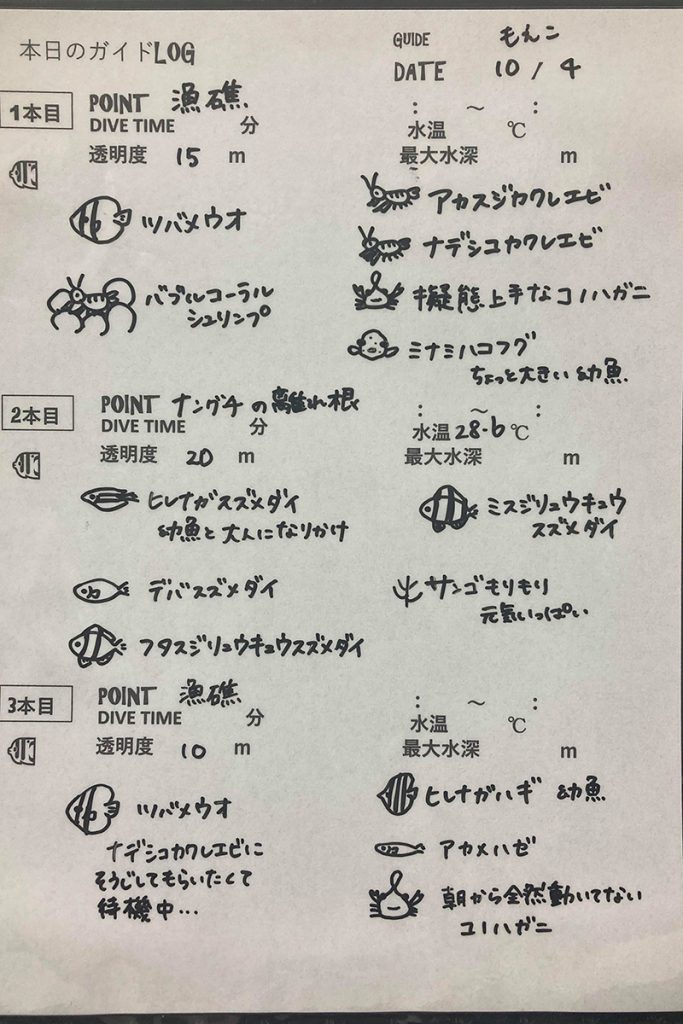 本日のガイドLOG
GUIDE もんこ
DATE 10 / 4
1本目 POINT 漁礁
DIVE TIME 分 : ～ :
水温 ℃
透明度 15 m 最大水深 m
ツバメウオ
バブルコーラル
シュリンプ
アカスジカクレエビ
ナデシコカクレエビ
擬態上手なコノハガニ
ミナミハコフグ
ちょっと大きい幼魚
2本目 POINT ナングチの離れ根
DIVE TIME 分 : ～ :
水温 28.6 ℃
透明度 20 m 最大水深 m
ヒレナガスズメダイ
幼魚と大人になりかけ
デバスズメダイ
フタスジリュウキュウスズメダイ
ミスジリュウキュウ
スズメダイ
サンゴもりもり
元気いっぱい
3本目 POINT 漁礁
DIVE TIME 分 : ～ :
水温 ℃
透明度 10 m 最大水深 m
ツバメウオ
ナデシコカクレエビに
そうじしてもらいたくて
待機中...
ヒレナガハギ 幼魚
アカメハゼ
朝から全然動いてない
コノハガニ